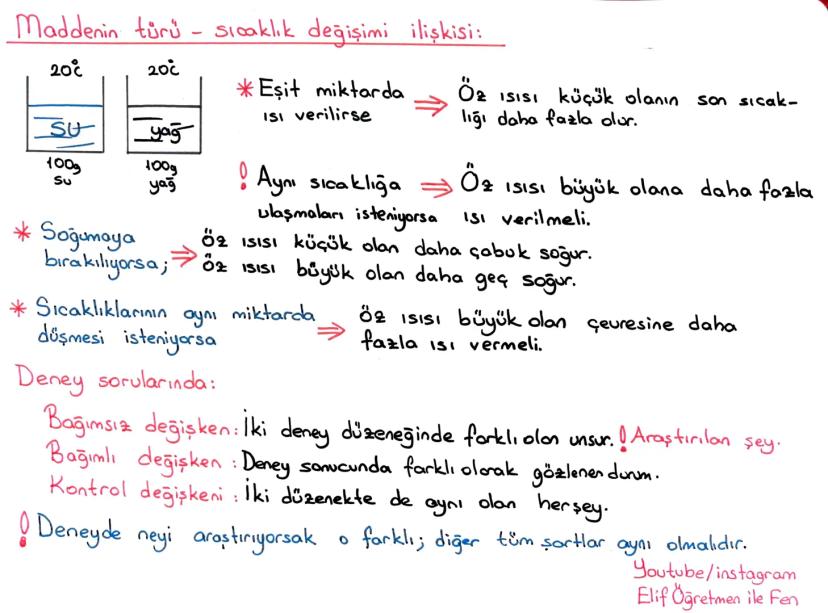 Maddenin türü - sıcaklık değişimi ilişkisi:
20°C 20°C
su yağ
100g su
100g yağ
* Eşit miktarda ısı verilirse ⇒ Öz ısısı küçük olanın son sıcak-
lığı daha fazla olur.
! Aynı sıcaklığa ⇒ Öz ısısı büyük olana daha fazla
ulaşmaları isteniyorsa ısı verilmeli.
* Soğumaya bırakılıyorsa; ⇒ Öz ısısı küçük olan daha çabuk soğur.
Öz ısısı büyük olan daha geç soğur.
* Sıcaklıklarının aynı miktarda ⇒ öz ısısı büyük olan çevresine daha
düşmesi isteniyorsa fazla ısı vermeli.
Deney sorularında:
Bağımsız değişken: İki deney düzeneğinde farklı olan unsur. ! Araştırılan şey.
Bağımlı değişken : Deney sonucunda farklı olarak gözlenen durum.
Kontrol değişkeni : İki düzenekte de aynı olan herşey.
! Deneyde neyi araştırıyorsak o farklı; diğer tüm şartlar aynı olmalıdır.
Youtube/instagram
Elif Öğretmen ile Fen